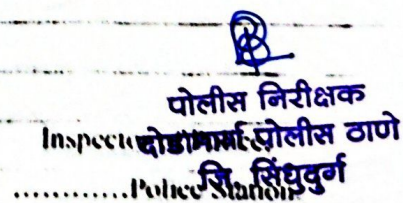 पोलीस निरीक्षक
दोडामार्ग पोलीस ठाणे
जि. सिंधुदुर्ग
............Police Station